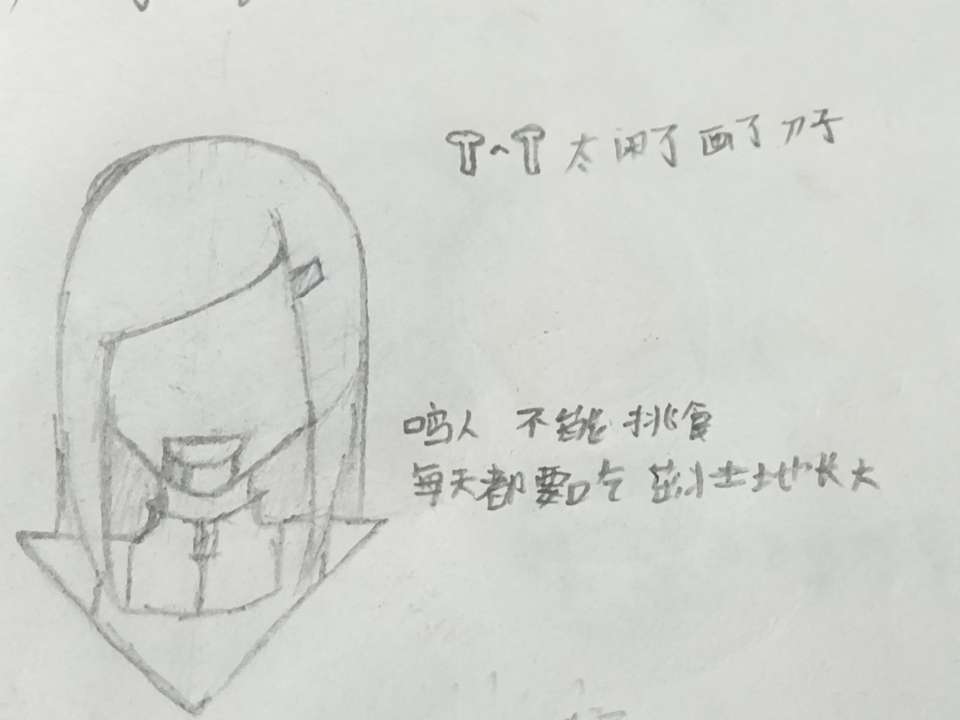 T~T 太闲了画了刀子
鸣人 不能挑食
每天都要吃 茁 土地长大